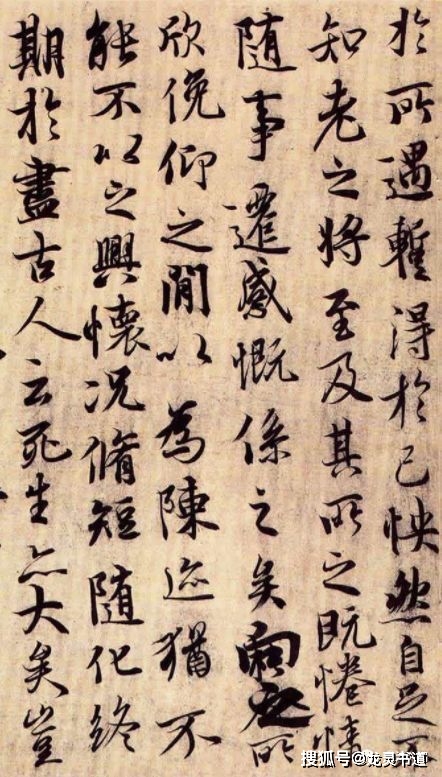 於所遇暫得於己怏然自足不
知老之將至及其所之既惓情
隨事遷感慨係之矣向之所
欣俛仰之閒以為陳迹猶不
能不以之興懷況脩短隨化終
期於盡古人云死生亦大矣豈
搜狐号@龙灵书道